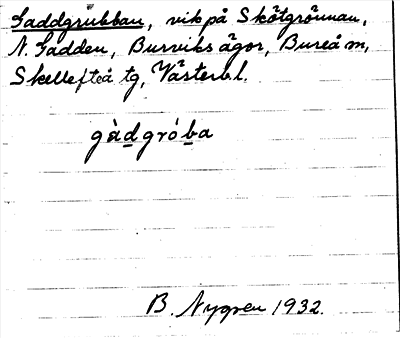 Gaddgrubban, vik på Skötgrönnan,
N. Gadden, Burviks ägor, Bureå m,
Skellefteå tg, Västerb l.
gàdgróba
B. Nygren 1932.